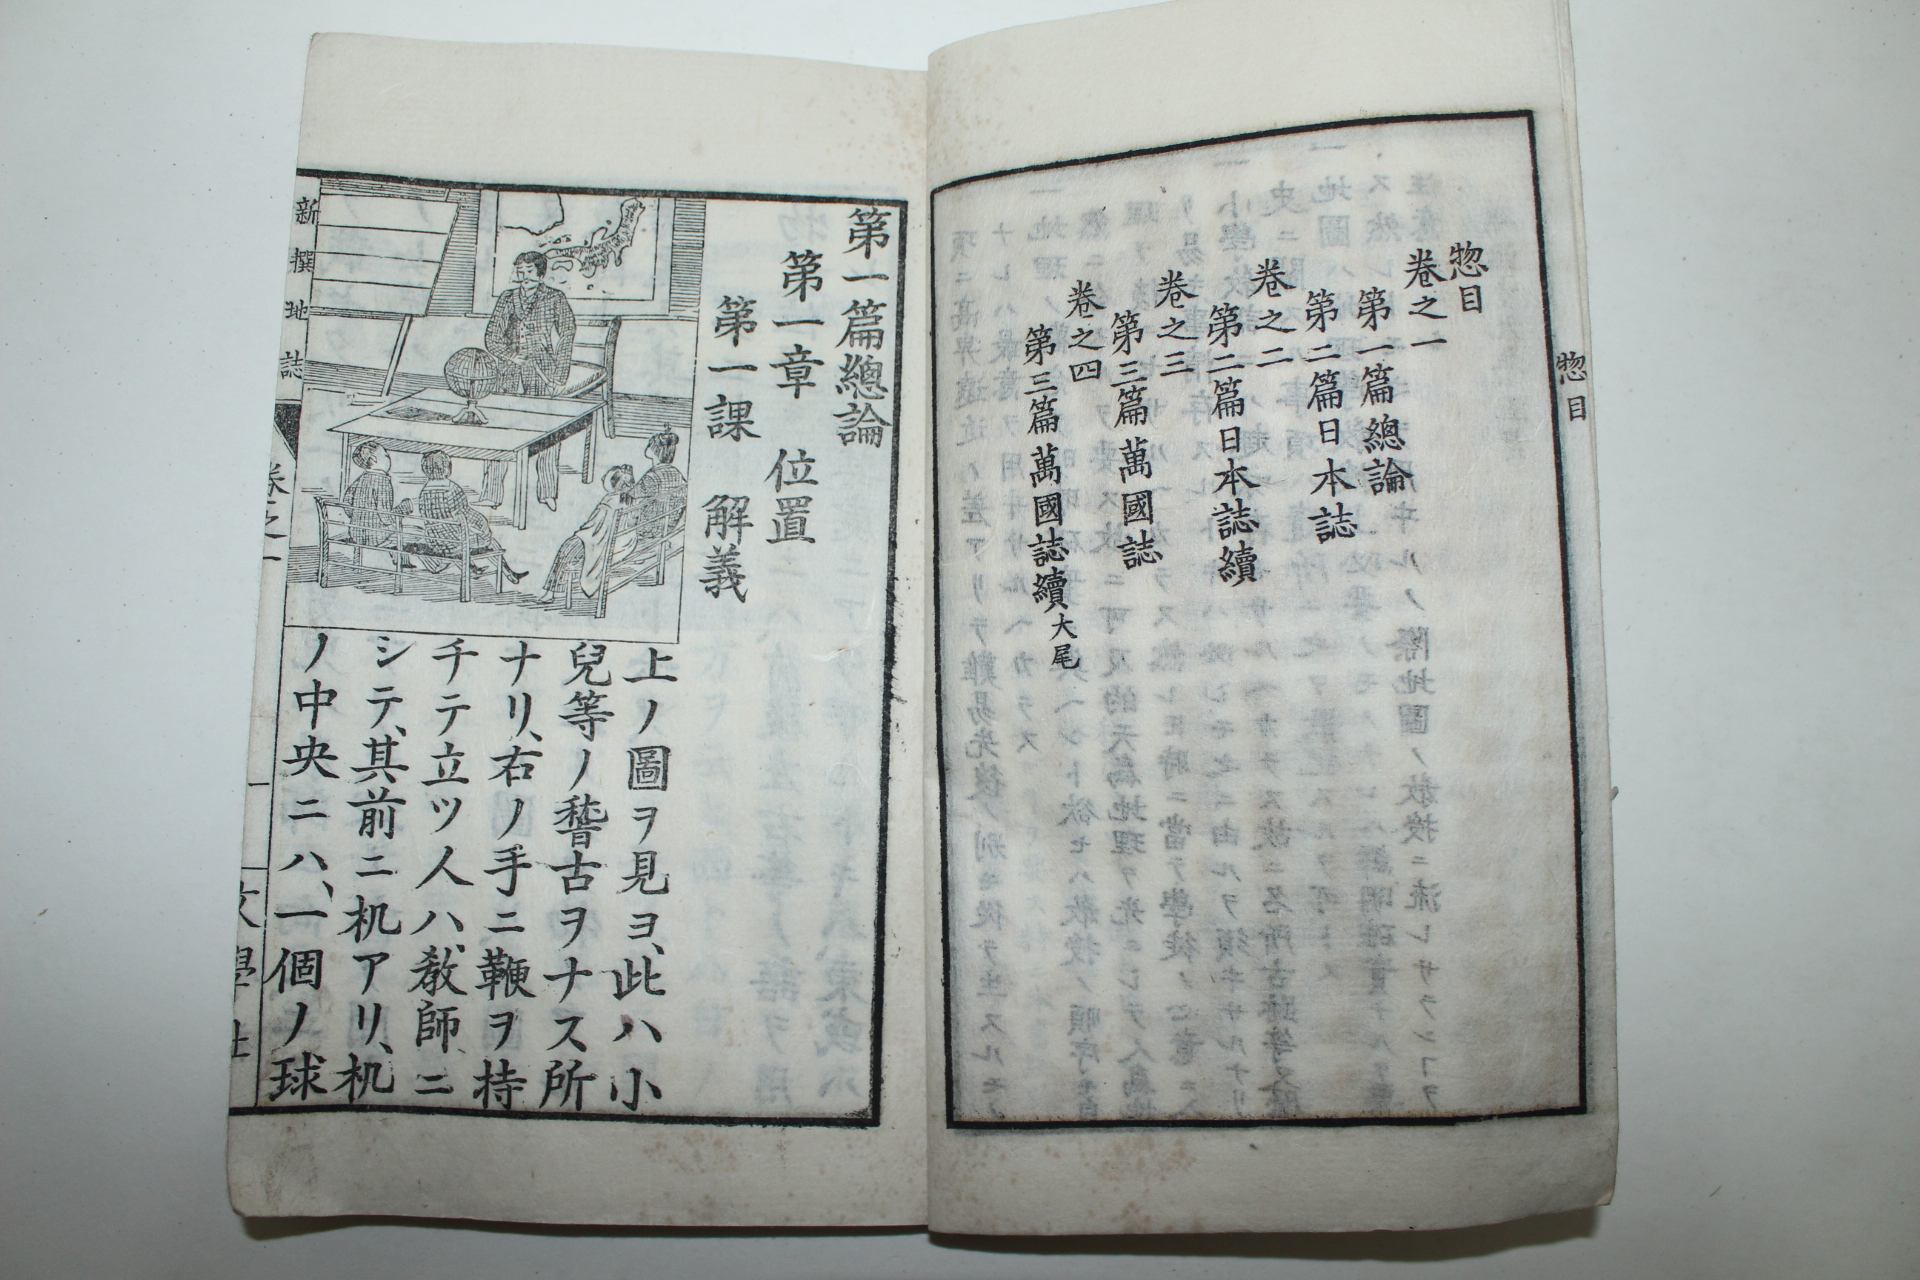 惣目
惣目
卷之一
第一篇總論
第二篇日本誌
卷之二
第二篇日本誌續
卷之三
第三篇萬國誌
卷之四
第三篇萬國誌續大尾
第一篇總論
第一章 位置
第一課 解義
上ノ圖ヲ見ヨ、此ハ小
兒等ノ稽古ヲナス所
ナリ、右ノ手ニ鞭ヲ持
チテ立ツ人ハ、教師ニ
シテ、其前ニ机アリ、机
ノ中央ニハ、一個ノ球
新撰地誌
卷之一
一
文學社